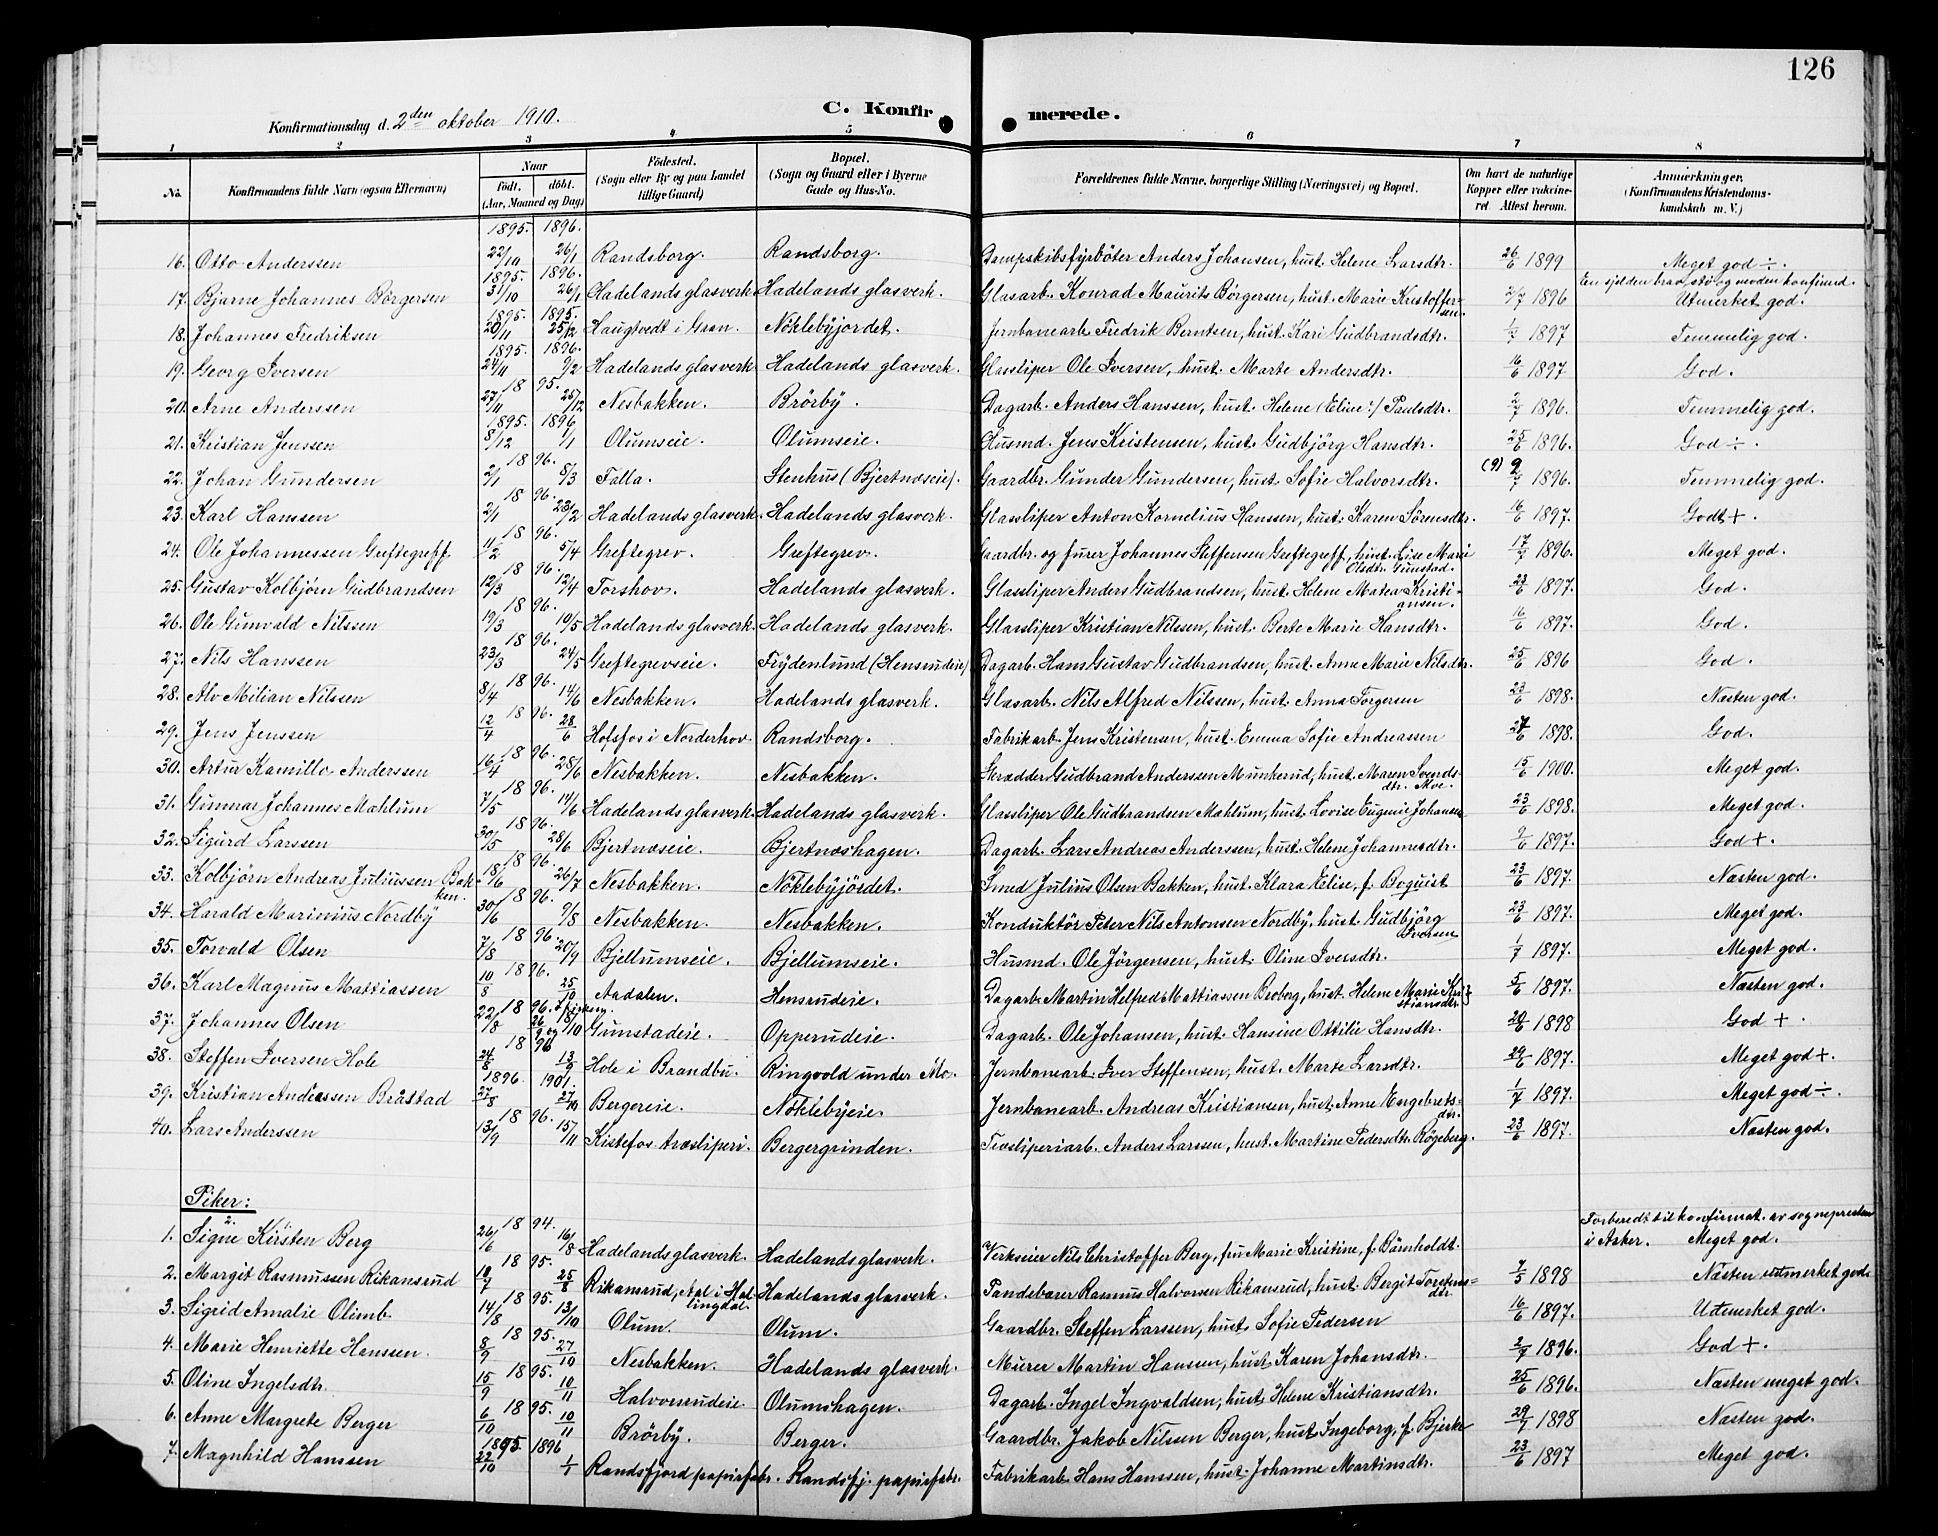 126
Konfirmationsdag d. 2den oktober 1910.
C. Konfirmerede.
1 2 3 4 5 6 7 8
No. Konfirmandens fulde Navn (ogsaa Efternavn) Naar født. døbt. (Aar, Maaned og Dag) Fødested. (Sogn eller By og paa Landet tillige Gaard) Bopæl. (Sogn og Gaard eller i Byerne Gade og Hus-No. Forældrenes fulde Navne, borgerlige Stilling (Næringsvei) og Bopæl. Om havt de naturlige Kopper eller vaccineret Attest herom. Anmerkninger. (Konfirmandens Kristendomskundskab m. V.)
1895. 1896.
16. Otto Anderssen 22/10 26/1 Randsborg. Randsborg. Dampskibsfyrböter Anders Johansen, hust. Helene Larsdtr. 26/6 1899 Meget god ÷.
1895 1896. En sjelden brav, stø og moden konfirmand.
17. Bjarne Johannes Börgersen 31/10 26/1 Hadelands glasverk. Hadelands glasverk. Glasarb. Konrad Maurits Börgersen, hust. Marie Kristoffersen. 2/7 1896 Utmerket god.
1895. 1895.
18. Johannes Fredriksen 20/11 25/12 Haugtvedt i Gran. Nöklebyjordet. Jernbanearb. Fredrik Berntsen, hust. Kari Gudbrandsdtr. 1/7 1897 Temmelig god.
1895. 1896.
19. Georg Iversen 24/11 9/2 Hadelands glasverk. Hadelands glasverk. Glassliper Ole Iversen, hust. Marte Andersdtr. 16/6 1897 God.
1895.
20. Arne Anderssen 27/11 25/12 Nesbakken. Brörby. Dagarb. Anders Hanssen, hust. Helene (Eline?) Paulsdtr. 2/7 1896. Temmelig god.
1895. 1896
21. Kristian Jenssen 8/12 1/1 Olumseie. Olumseie. Husmd. Jens Kristensen, hust. Gudbjörg Hansdtr. 25/6 1896. God ÷.
1896.
22. Johan Gundersen 2/1 8/3 Falla. Stenhus (Bjertnæseie). Gaardbr. Gunder Gundersen, hust. Sofie Halvorsdtr. (9) 9/7 1896. Temmelig god.
1896.
23. Karl Hanssen 2/1 23/2 Hadelands glasverk. Hadelands glasverk. Glassliper Anton Kornelius Hanssen, hust. Karen Sörensdtr. 16/6 1897. Godt +.
1896.
24. Ole Johannessen Greftegreff 11/2 5/4 Greftegrev. Greftegrev. Gaardbr. og furer Johannes Steffensen Greftegreff, hust. Lise Marie Olsdtr. Gunstad. 17/7 1896. Meget god.
1896.
25. Gustav Kolbjörn Gudbrandsen 12/3 12/4 Torshov. Hadelands glasverk. Glassliper Anders Gudbrandsen, hust. Helene Matea Kristiansen. 23/6 1897. God.
1896.
26. Ole Gunvald Nilssen 19/3 10/5 Hadelands glasverk. Hadelands glasverk. Glassliper Kristian Nilssen, hust. Berte Marie Hansdtr. 16/6 1897. God.
1896.
27. Nils Hanssen 23/3 24/5 Greftegrevseie. Frydenlund (Hensrudeie) Dagarb. Hans Gustav Gudbrandsen, hust. Anne Marie Nilsdtr. 25/6 1896 God.
1896.
28. Alv Milian Nilsen 8/4 14/6 Nesbakken. Hadelands glasverk. Glasarb. Nils Alfred Nilsen, hust. Anna Torgersen 23/6 1898. Næsten god.
1896.
29. Jens Jenssen 12/4 28/6 Hofsfos i Norderhov Randsborg. Fabrikarb. Jens Kristensen, hust. Emma Sofie Andreassen 27/6 1898. God.
1896.
30. Artur Kamillo Anderssen 16/4 28/6 Nesbakken. Nesbakken. Skrædder Gudbrand Anderssen Munkerud, hust. Maren Svendsdtr. Moe. 15/6 1900. Meget god.
1896.
31. Gunnar Johannes Mæhlum 7/5 14/6 Hadelands glasverk. Hadelands glasverk. Glassliper Ole Gudbrandsen Mæhlum, hust. Lovise Eugenie Johansen 23/6 1898. Meget god.
1896.
32. Sigurd Larssen 30/5 28/6 Bjertnæseie. Bjertnæshagen. Dagarb. Lars Andreas Anderssen, hust. Helene Johannesdtr. 9/6 1897. God +.
1896.
33. Kolbjörn Andreas Juliussen Bakken. 18/6 26/7 Nesbakken. Nöklebyjördet. Smed Julius Olsen Bakken, hust. Klara Elise, f. Boquist 23/6 1897. Næsten god.
1896.
34. Harald Marinius Nordby 30/6 9/8 Nesbakken. Nesbakken. Konduktör Peter Nils Antonsen Nordby, hust. Gudbjörg Iversen 23/6 1897. Meget god.
1896.
35. Torvald Olsen 7/8 20/9 Bjellumseie. Bjellumseie. Husmd. Ole Jörgensen, hust. Oline Iversdtr. 1/7 1897. Meget god.
1896.
36. Karl Magnus Mattiassen 10/8 25/10 Aadalen. Hensrudeie. Dagarb. Martin Helfred Mattiassen Broberg, hust. Helene Marie Kristiansdtr. 5/6 1897. Næsten god.
1896.
37. Johannes Olsen 22/8 26/9 og 18/10 Gunstadeie. Opperudeie. Dagarb. Ole Johansen, hust. Hansine Ottilie Hansdtr. 20/6 1898 God +.
1896
38. Steffen Iversen Hole 24/8 13/9 Hole i Brandbu. Ringvold under Mo. Jernbanearb. Iver Steffensen, hust. Marte Larsdtr. 29/6 1897. Meget god +.
1896. 1901.
39. Kristian Andreassen Bråstad 27/8 27/10 Bergereie. Nöklebyeie. Jernbanearb. Andreas Kristiansen, hust. Anne Engebretsdtr. 1/7 1897. Meget god ÷.
1896.
40. Lars Anderssen 13/9 15/11 Kistefos træsliperi. Bergergrinden. Træsliperiarb. Anders Larssen, hust. Martine Pedersdtr. Røgeberg. 23/6 1897. Næsten god.
Piker:
1894. Forberedt til konfirmat. av sognepresten i Asker.
1. Signe Kirsten Berg 26/6 16/8 Hadelands glasverk. Hadelands glasverk. Verkseier Nils Christoffer Berg, fru Marie Kristine, f. Börnholdt. Meget god.
1895.
2. Margit Rasmussen Rikansrud 10/7 25/8 Rikansrud, Aal i Hallingdal. Hadelands glasverk. Pandebærer Rasmus Halvorsen Rikansrud, hust. Bergit Torstensdtr. 7/5 1898 Næsten utmerket god.
1895.
3. Sigrid Amalie Olimb 14/8 13/10 Olum. Olum. Gaardbr. Steffen Larssen, hust. Sofie Pedersen 16/6 1897. Utmerket god.
1895.
4. Marie Henriette Hanssen. 8/9 27/10 Nesbakken. Hadelands glasverk. Murer Martin Hansen, hust. Karen Johansdtr. 2/7 1896. God +.
1895.
5. Oline Ingelsdtr. 15/9 10/11 Halvorsrudeie. Olumshagen. Dagarb. Ingel Ingvaldsen, hust. Helene Kristiansdtr. 25/6 1896. Næsten meget god.
1895.
6. Anne Margrete Berger 6/10 10/11 Brörby. Berger. Gaardbr. Jakob Nilsen Berger, hust. Ingeborg, f. Bjerke 29/7 1898 Næsten god.
1895. 1896
7. Magnhild Hanssen 22/10 1/1 Randsfjord papirfabr. Randsfj. papirfabr. Fabrikarb. Hans Hanssen, hust. Johanne Martinsdtr. 23/6 1897 Meget god.